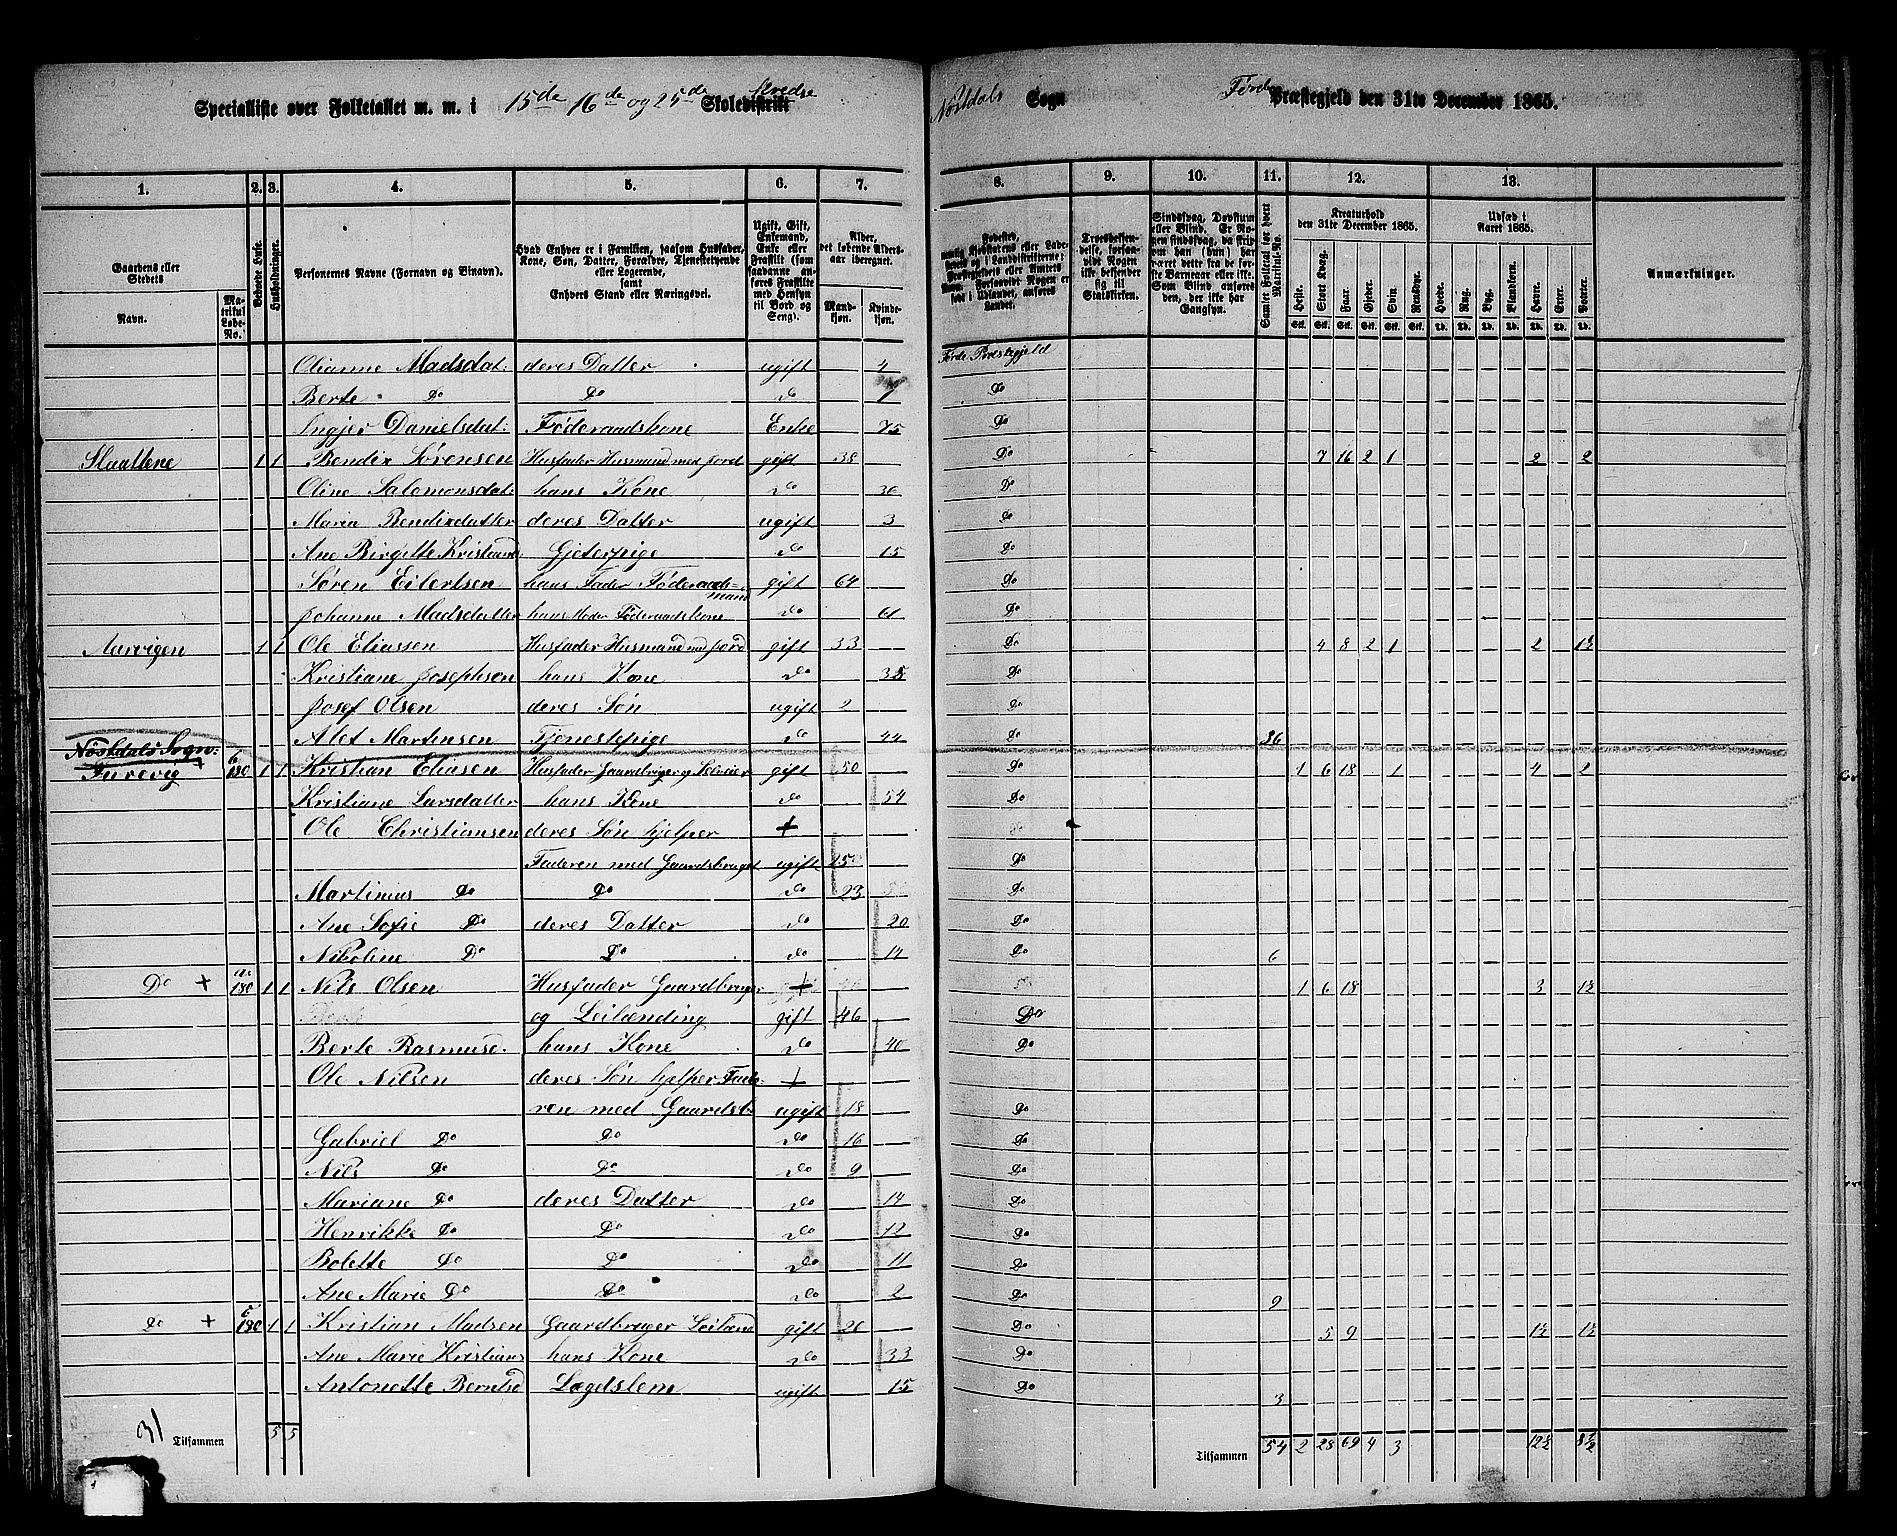 Specialliste over Folketallet m. m. i 15de 16de og 25de Skoledistrikt Kredse
Nøstdals Sogn Førde Præstegjeld den 31te December 1865.
1. 2. 3. 4. 5. 6. 7. 8. 9. 10. 11. 12. 13.
Gaardens eller Stedets Navn.
Matrikul Løbe-No.
Bebodde Huse.
Husholdninger.
Personernes Navne (Fornavn og Binavn).
Hvad Enhver er i Familien, saasom Husfader, Kone, Søn, Datter, Forældre, Tjenestetyende eller Logerende, samt Enhvers Stand eller Næringsvei.
Ugift, Gift, Enkemand, Enke eller Fraskilt (som saadanne anføres Fraskilte med Hensyn til Bord og Seng).
Alder, det løbende Aldersaar iberegnet.
Mandkjøn. Kvindekjøn.
Troesbekjendelse, forsaavidt Nogen ikke bekjender sig til Statskirken.
Sindssvag, Døvstum eller Blind. Er Nogen sindssvag, da skrives om han (hun) har været dette fra de første Barneaar eller ikke. Som Blind anføres den, der ikke har Gangsyn.
Samlet Folketal for hvert Matrikul-No.
Kreaturhold den 31te December 1865.
Heste. Stort Kvæg. Faar. Gjeder. Svin. Rensdyr.
Udsæd i Aaret 1865.
Hvede. Rug. Byg. Blandkorn. Havre. Erter. Poteter.
Anmærkninger.
Olianne Madsdat: deres Datter ugift 4 Førde Præstegjeld
Berte Do Do do 7 Do
Ingjer Danielsdat: Føderaadskone Enke 75 Do
Slaattene 1 1 Bendix Sørensen Husfader Husmand med Jord gift 38 Do 7 16 2 1 2 2
Oline Salomonsdat: hans Kone do 30 Do
Maria Bendixdatter deres Datter ugift 3 Do
Ane Birgitte Kristiansd Gjeterpige do 15 Do
Søren Eilertsen hans Fader Føderaadsmand gift 64 Do
Johanne Madsdatter hans Moder Føderaadskone do 61 Do
Aarvigen 1 1 Ole Eliassen Husfader Husmand med Jord gift 33 Do 4 8 2 1 2 1½
Kristiane Josephsen hans Kone do 35 Do
Josef Olsen deres Søn ugift 2 Do
Alet Martinsen Tjenestepige do 44 Do 36
Nøstdals Sogn:
Furevig 6 180 1 1 Kristian Eliasen Husfader Gaardbruger og Selveier gift 50 Do 1 6 18 1 4 2
Kristiane Larsdatter hans Kone do 54 Do
Ole Christiansen deres Søn hjelper +
Faderen med Gaardsbruget ugift 25 Do
Martinus Do Do do 23 Do
Ane Sofie Do deres Datter do 20 Do
Nikoline Do Do do 14 Do 6
Do + a. 180 1 1 Nils Olsen Husfader Gaardbruger + 1 6 18 3 1½
og Leilænding gift 46 Do
Berte Rasmusd. hans Kone do 40 Do
Ole Nilsen deres Søn hjelper Fade- +
ren med Gaardsb. ugift 18 Do
Gabriel Do Do do 16 Do
Nils Do Do do 9 Do
Mariane Do deres Datter do 14 Do
Henrikke Do Do do 12 Do
Bolette Do Do do 11 Do
Ane Marie Do Do do 2 Do 9
Do + 180 1 1 Kristian Madsen Gaardbruger Leilænd gift 26 Do 5 9 1½ 1½
Ane Marie Kristians hans Kone do 33 Do
Antonette Berntsd Lægdslem ugift 15 Do 3
31
Tilsammen 5 5
Tilsammen 54 2 28 69 4 3 12½ 8½